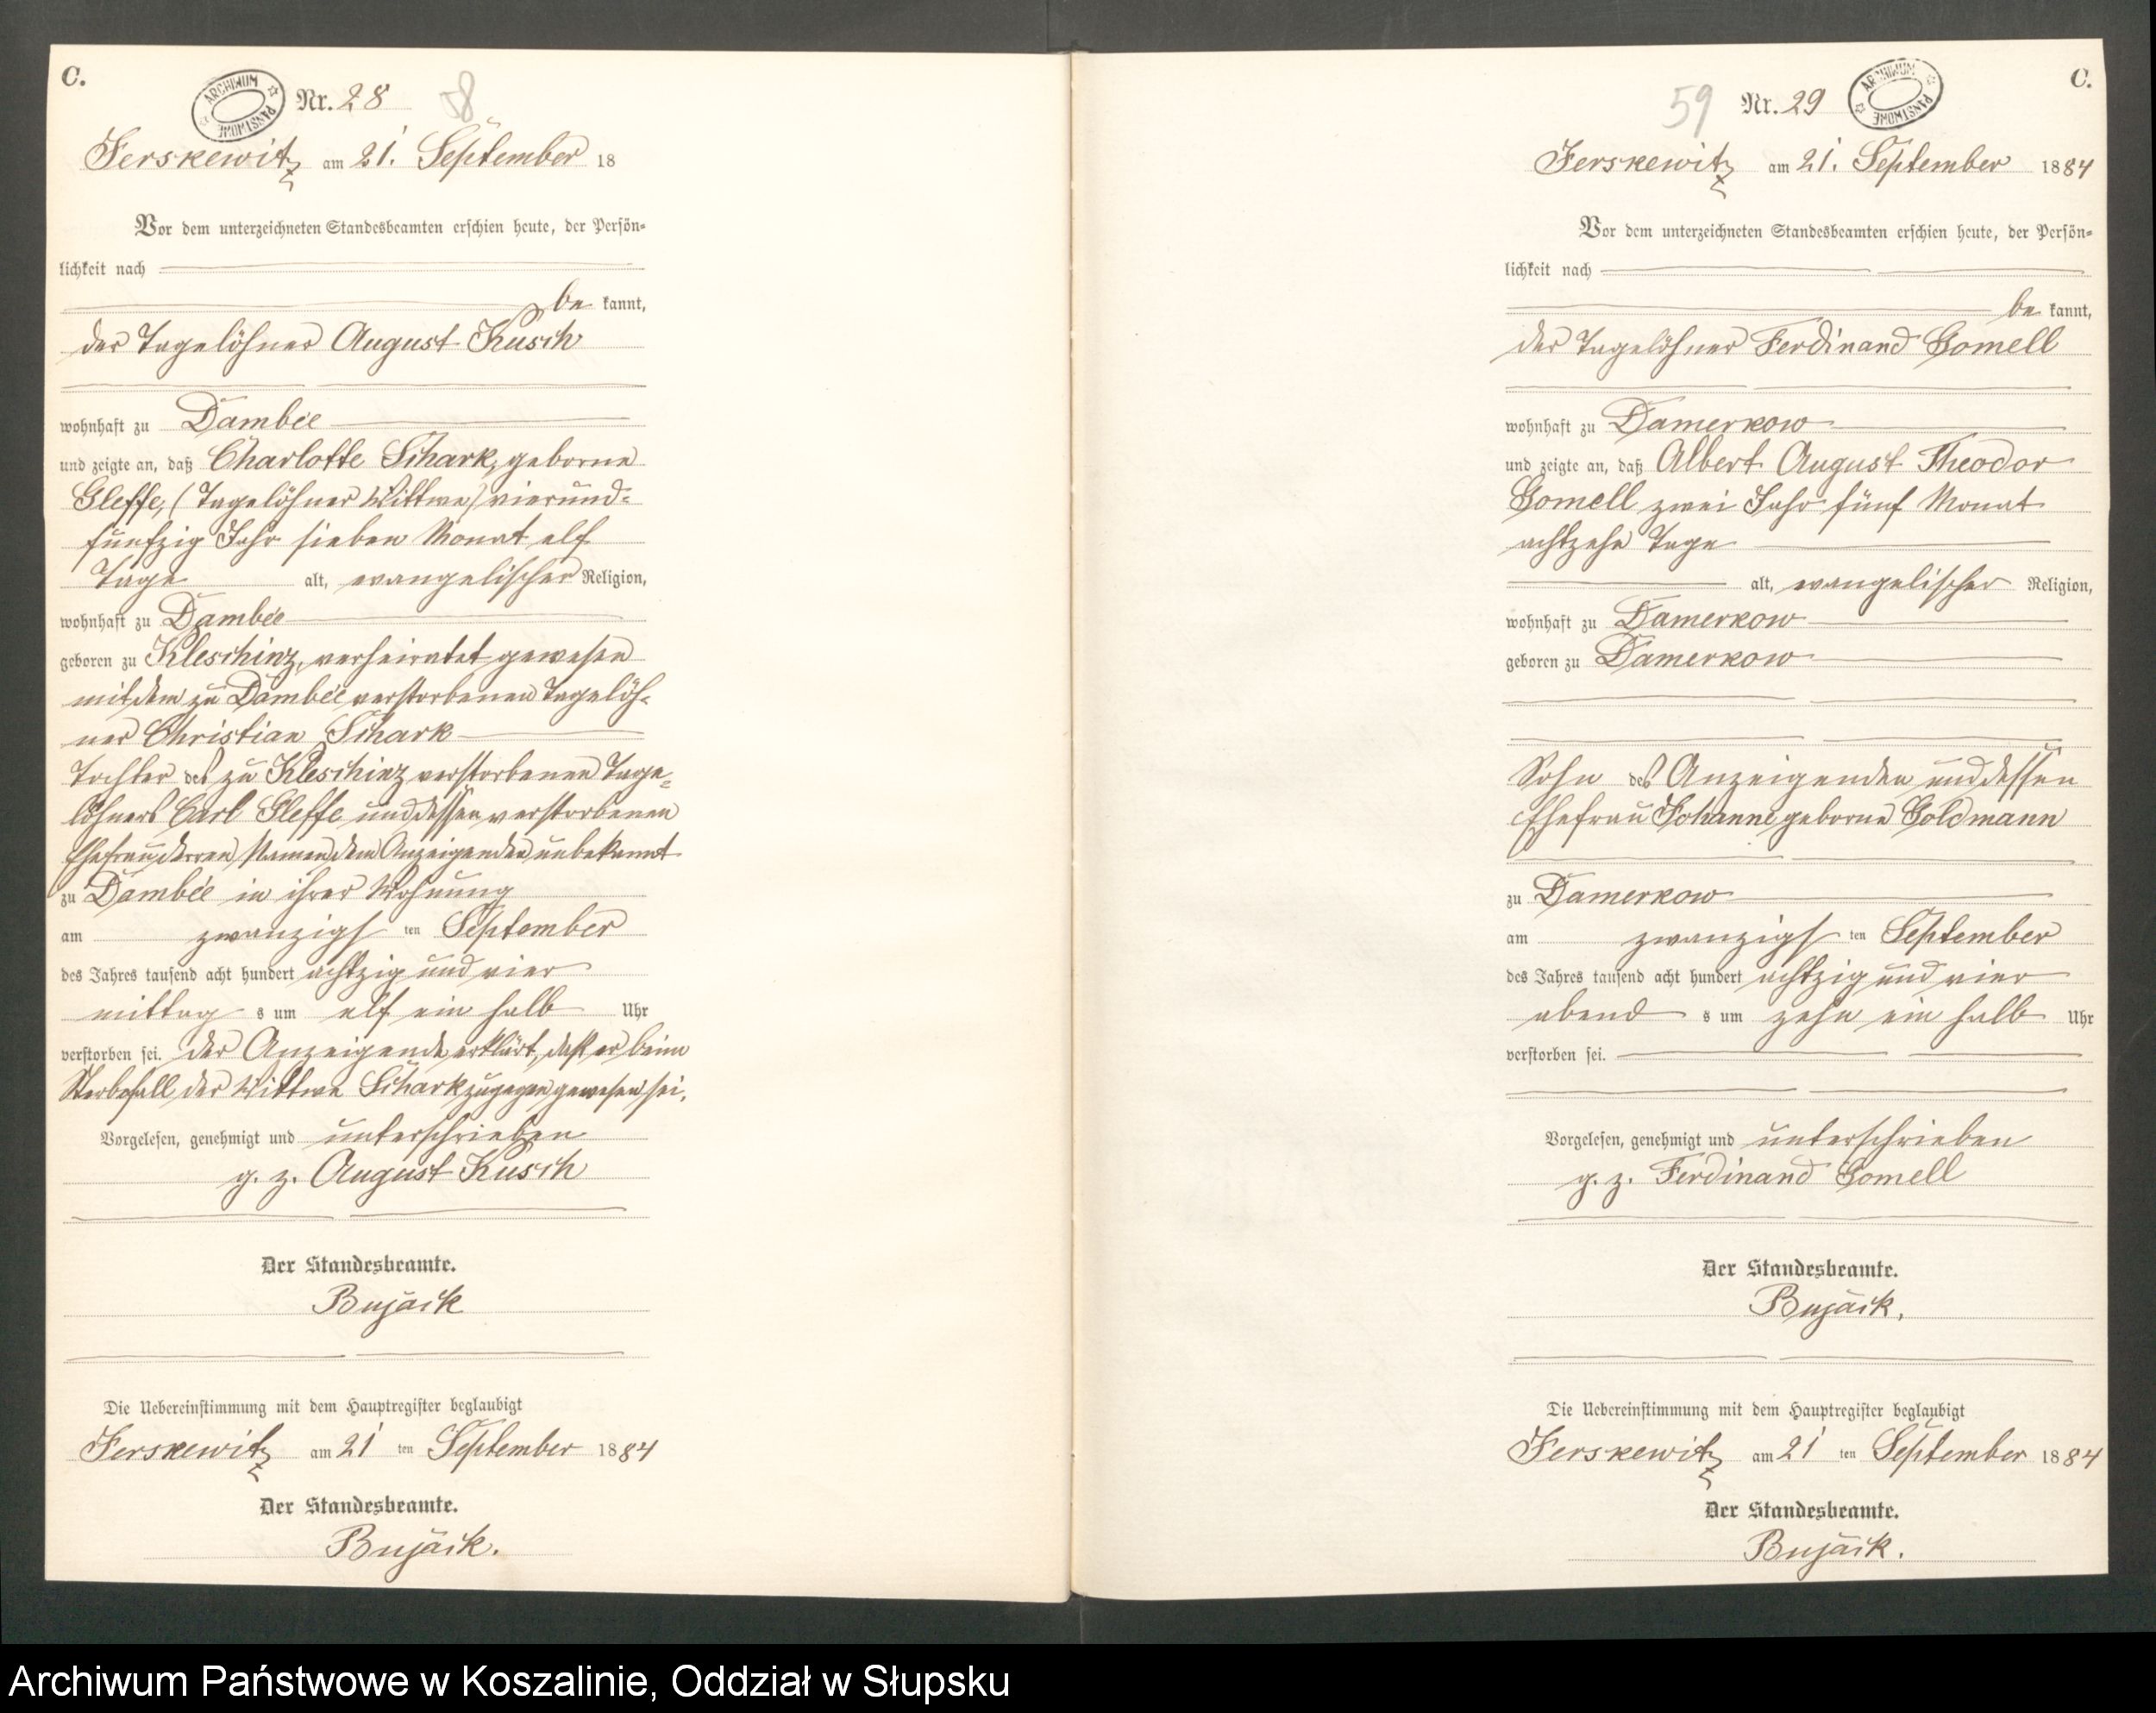 C.
ARCHIWUM PAŃSTWOWE
Nr. 28
58
Jerskewitz am 21. September 18
Vor dem unterzeichneten Standesbeamten erschien heute, der Persön-
lichkeit nach
be kannt,
der Tagelöhner August Kusch
wohnhaft zu Dambee
und zeigte an, daß Charlotte Schark, geborne
Gleffe, (Tagelöhner Wittwe) vierund-
funfzig Jahr sieben Monat elf
Tage alt, evangelischer Religion,
wohnhaft zu Dambee
geboren zu Kleschinz, verheiratet gewesen
mit dem zu Dambee verstorbenen Tagelöh-
ner Christian Schark
Tochter des zu Kleschinz verstorbenen Tage-
löhners Carl Gleffe und dessen verstorbenen
Ehefrau derren Namen dem Anzeigenden unbekannt
zu Dambee in ihrer Wohnung
am zwanzigs ten September
des Jahres tausend acht hundert achtzig und vier
mittag s um elf ein halb Uhr
verstorben sei. Der Anzeigende erklärt, daß er beim
Sterbefall der Wittwe Schark zugegen gewesen sei.
Vorgelesen, genehmigt und unterschrieben
g. z. August Kusch
Der Standesbeamte.
Bujack
Die Uebereinstimmung mit dem Hauptregister beglaubigt
Jerskewitz am 21 ten September 1884
Der Standesbeamte.
Bujack.
C.
59
Nr. 29
ARCHIWUM PAŃSTWOWE
Jerskewitz am 21. September 1884
Vor dem unterzeichneten Standesbeamten erschien heute, der Persön-
lichkeit nach
be kannt,
der Tagelöhner Ferdinand Gomell
wohnhaft zu Damerkow
und zeigte an, daß Albert August Theodor
Gomell zwei Jahr fünf Monat
achtzehn Tage
alt, evangelischer Religion,
wohnhaft zu Damerkow
geboren zu Damerkow
Sohn des Anzeigenden und dessen
Ehefrau Johanne geborne Goldmann
zu Damerkow
am zwanzigs ten September
des Jahres tausend acht hundert achtzig und vier
abend s um zehn ein halb Uhr
verstorben sei.
Vorgelesen, genehmigt und unterschrieben
g. z. Ferdinand Gomell
Der Standesbeamte.
Bujack.
Die Uebereinstimmung mit dem Hauptregister beglaubigt
Jerskewitz am 21 ten September 1884
Der Standesbeamte.
Bujack.
Archiwum Państwowe w Koszalinie, Oddział w Słupsku